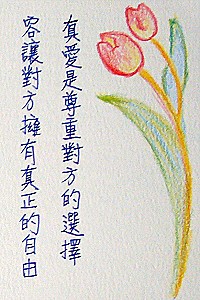 真愛是尊重對方的選擇
容讓對方擁有真正的自由